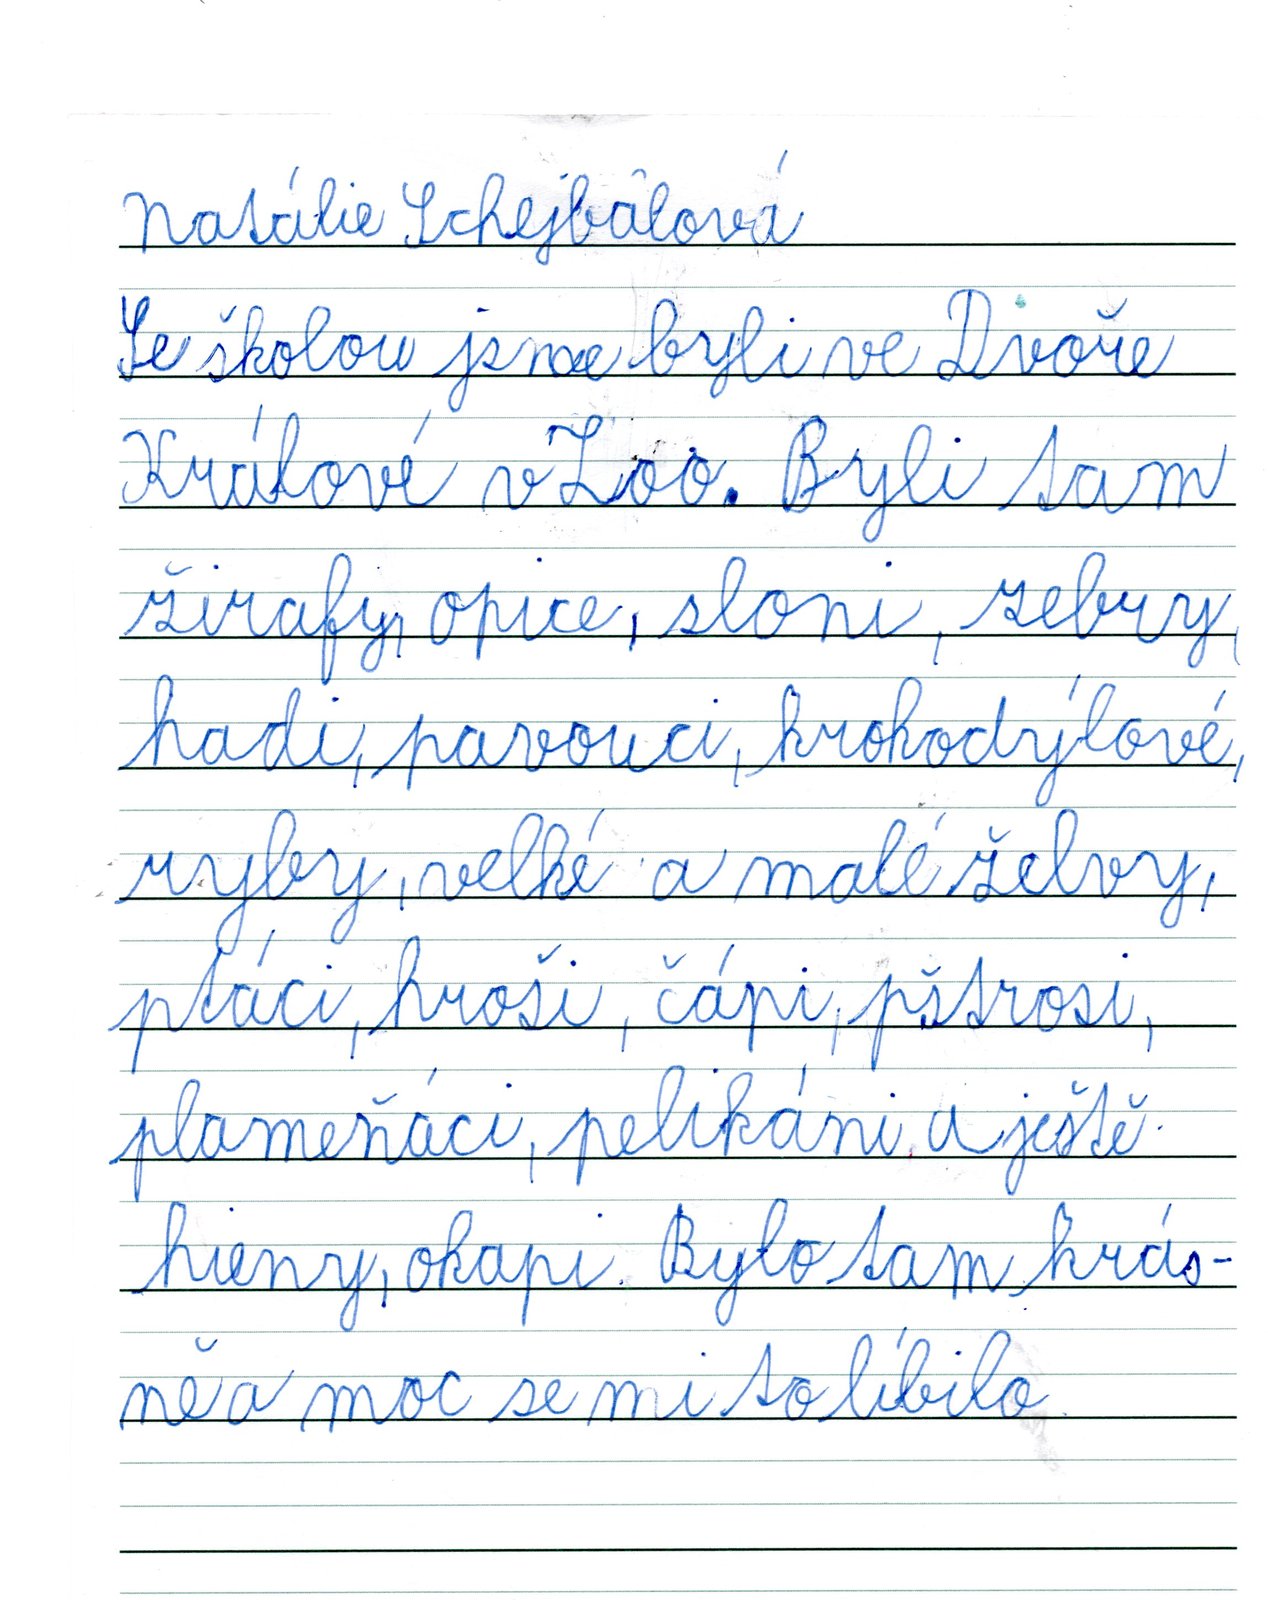 Natálie Schejbalová
Se školou jsme byli ve Dvoře
Králové v Zoo. Byli tam
žirafy, opice, sloni, zebry,
hadi, pavouci, krokodýlové,
ryby, velké a malé želvy,
ptáci, hroši, čápi, pštrosi,
plameňáci, pelikáni a ještě
hieny, okapi. Bylo tam krás-
ně a moc se mi to líbilo.